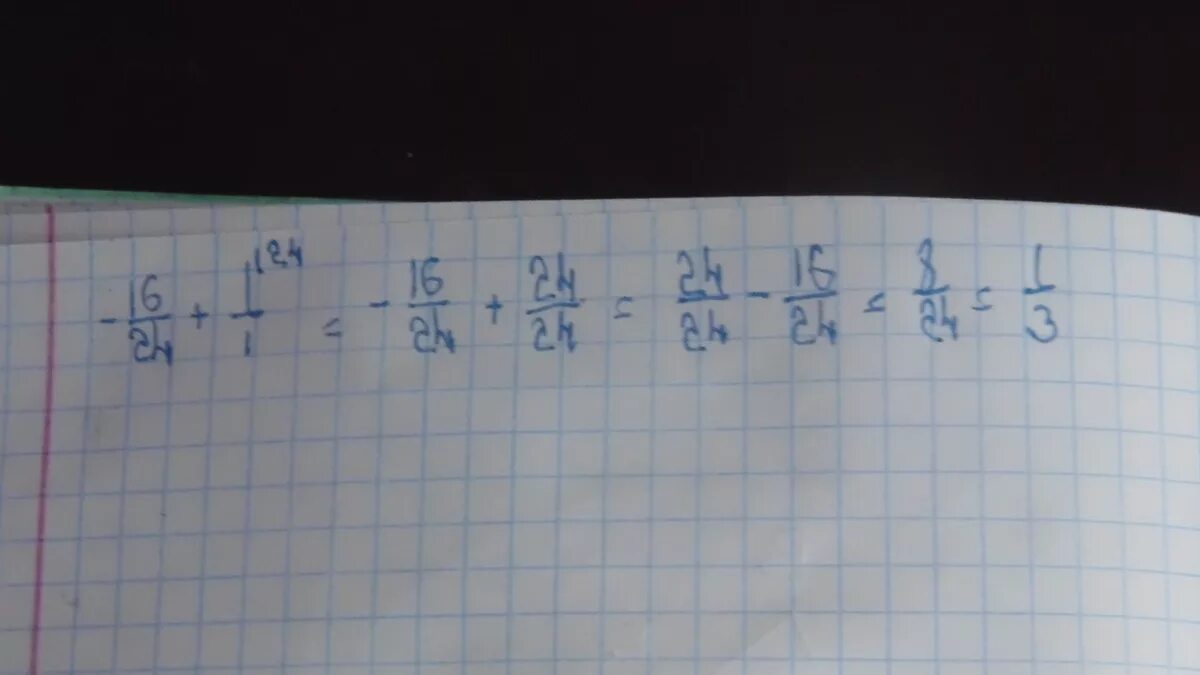 -16/24 + 1/1^24 = -16/24 + 24/24 = 24/24 - 16/24 = 8/24 = 1/3